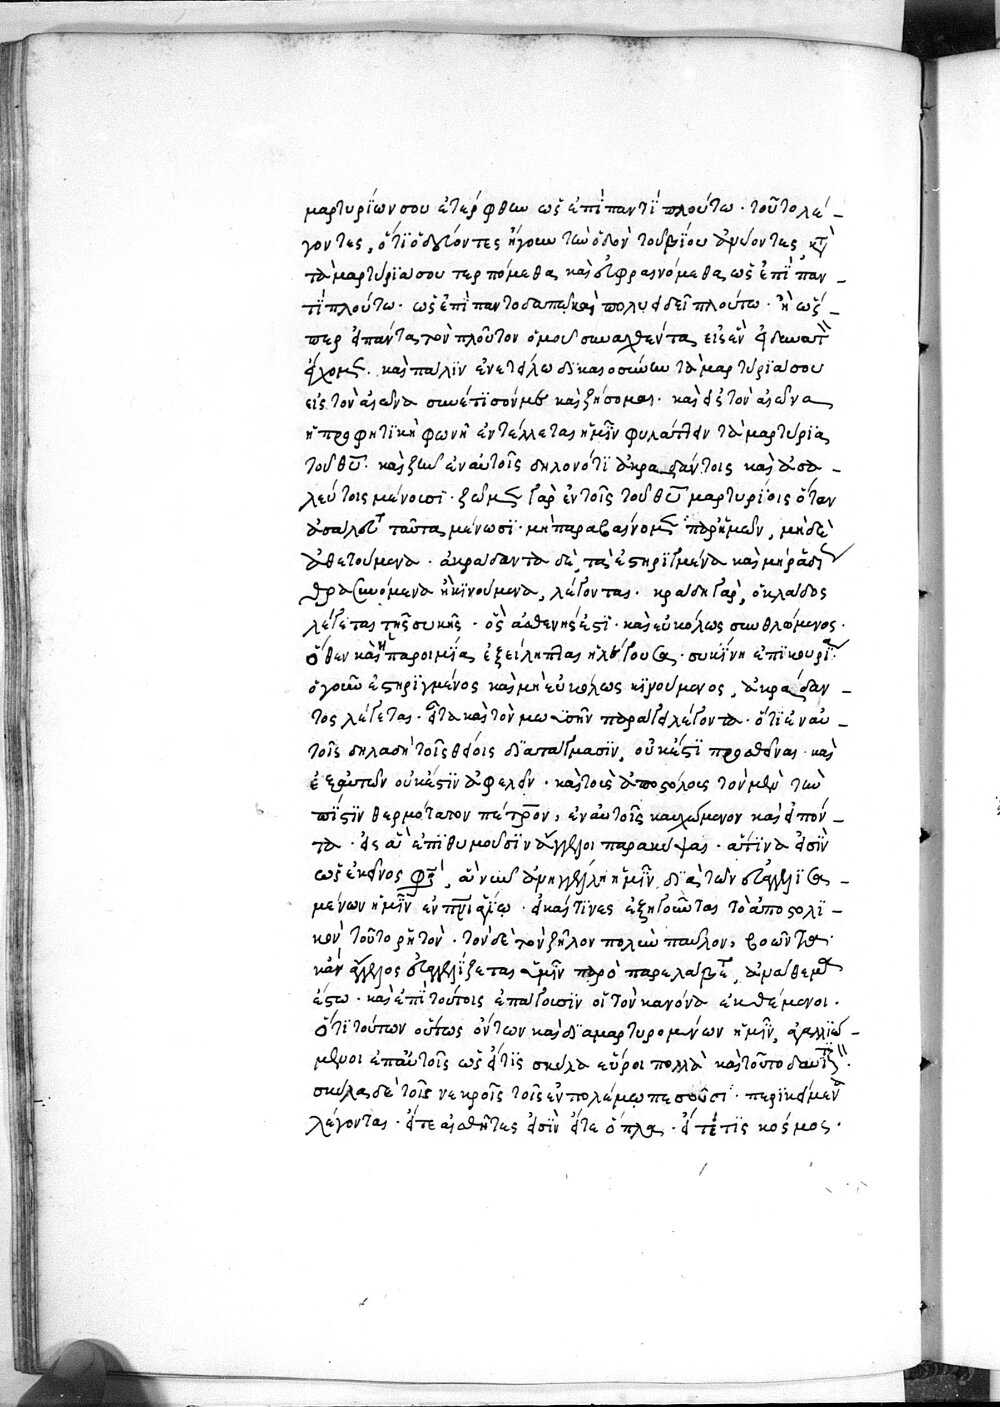 μαρτυρίων σου ἐτέρφθην ὡς ἐπὶ παντὶ πλούτω · τοῦτο λέ-
γοντες, ὅτι ὁδεύοντες ἤγουν τὴν ὁδὸν τοῦ βίου ἀνύοντες κατὰ
τὰ μαρτύριά σου τερπόμεθα καὶ εὐφραινόμεθα ὡς ἐπὶ παν-
τὶ πλούτω · ὡς ἐπὶ παντοδαπῶ καὶ πολυειδεῖ πλούτω · ἢ ὥσ-
περ ἅπαντα τὸν πλοῦτον ὁμοῦ συναχθέντα εἰς ἓν
ἔχομεν · καὶ πάλιν ἐνετείλω δικαιοσύνην τὰ μαρτύριά σου
εἰς τὸν αἰῶνα συνέτισόν με καὶ ζήσομαι · καὶ εἰς τὸν αἰῶνα
ἡ προφητικὴ φωνὴ ἐντέλλεται ἡμῖν φυλάττειν τὰ μαρτύρια
τοῦ θυ · καὶ ζῆν ἐν αὐτοῖς δηλονότι ἀκραδάντοις καὶ ἀσα-
λεύτοις μένουσι · ζῶμεν γὰρ ἐν τοῖς τοῦ θυ μαρτυρίοις ὅταν
ἀσάλευτα ταῦτα μένωσι · μὴ παραβαινόμενα παρ' ἡμῶν, μηδὲ
ἀθετούμενα · ἀκράδαντα δὲ, τὰ ἐστηριγμένα καὶ μὴ ῥαδίως
θραυόμενα ἢ κινούμενα, λέγονται · κράδη γὰρ, ὁ κλάδος
λέγεται τῆς συκῆς · ὃς ἀσθενής ἐστι · καὶ εὐκόλως συνθλώμενος ·
ὅθεν καὶ ἡ παροιμία ἐξείληπται ἡ λέγουσα · συκίνη ἐπικουρία ·
ὁ γοῦν ἐστηριγμένος καὶ μὴ εὐκόλως κινούμενος, ἀκράδαν-
τος λέγεται · εἶτα καὶ τὸν μωϋσῆν παράγει λέγοντα · ὅτι ἐν αὐ-
τοῖς δηλαδὴ τοῖς θείοις διατάγμασιν, οὐκ ἔστι προσθεῖναι · καὶ
ἐξ αὐτῶν οὐκ ἔστιν ἀφελεῖν · καὶ τοὺς ἀποστόλους τὸν μὲν τὴν
πίστιν θερμότατον πέτρον, ἐν αὐτοῖς καυχώμενον καὶ εἰπόν-
τα · εἰς ἃ ἐπιθυμοῦσιν ἄγγελοι παρακύψαι · ἅτινα εἰσὶν
ὡς ἐκεῖνος φησὶ, ἃ νῦν ἀνηγγέλη ἡμῖν διὰ τῶν εὐαγγελισα-
μένων ἡμῖν ἐν πνι ἁγίω · εἰ καί τινες ἐξηγοῦνται τὸ ἀποστολι-
κὸν τοῦτο ῥητόν · τὸν δὲ τὸν ζῆλον πολὺν παῦλον, βοῶντα ·
κἂν ἄγγελος εὐαγγελίζεται ὑμῖν παρ' ὃ παρελάβετε, ἀνάθεμα
ἔστω · καὶ ἐπὶ τούτοις ἐπάγουσιν οἱ τὸν κανόνα ἐκθέμενοι ·
ὅτι τούτων οὕτως ὄντων καὶ διαμαρτυρομένων ἡμῖν, ἀγαλλιώ-
μενοι ἐπ' αὐτοῖς ὡς εἴ τις σκῦλα εὕροι πολλὰ καὶ τοῦτο
σκῦλα δὲ τοῖς νεκροῖς τοῖς ἐν πολέμω πεσοῦσι · περικείμενα
λέγονται · εἴτε αἰσθῆτες εἰσὶν εἴτε ὅπλα · εἴτέ τις κόσμος ·